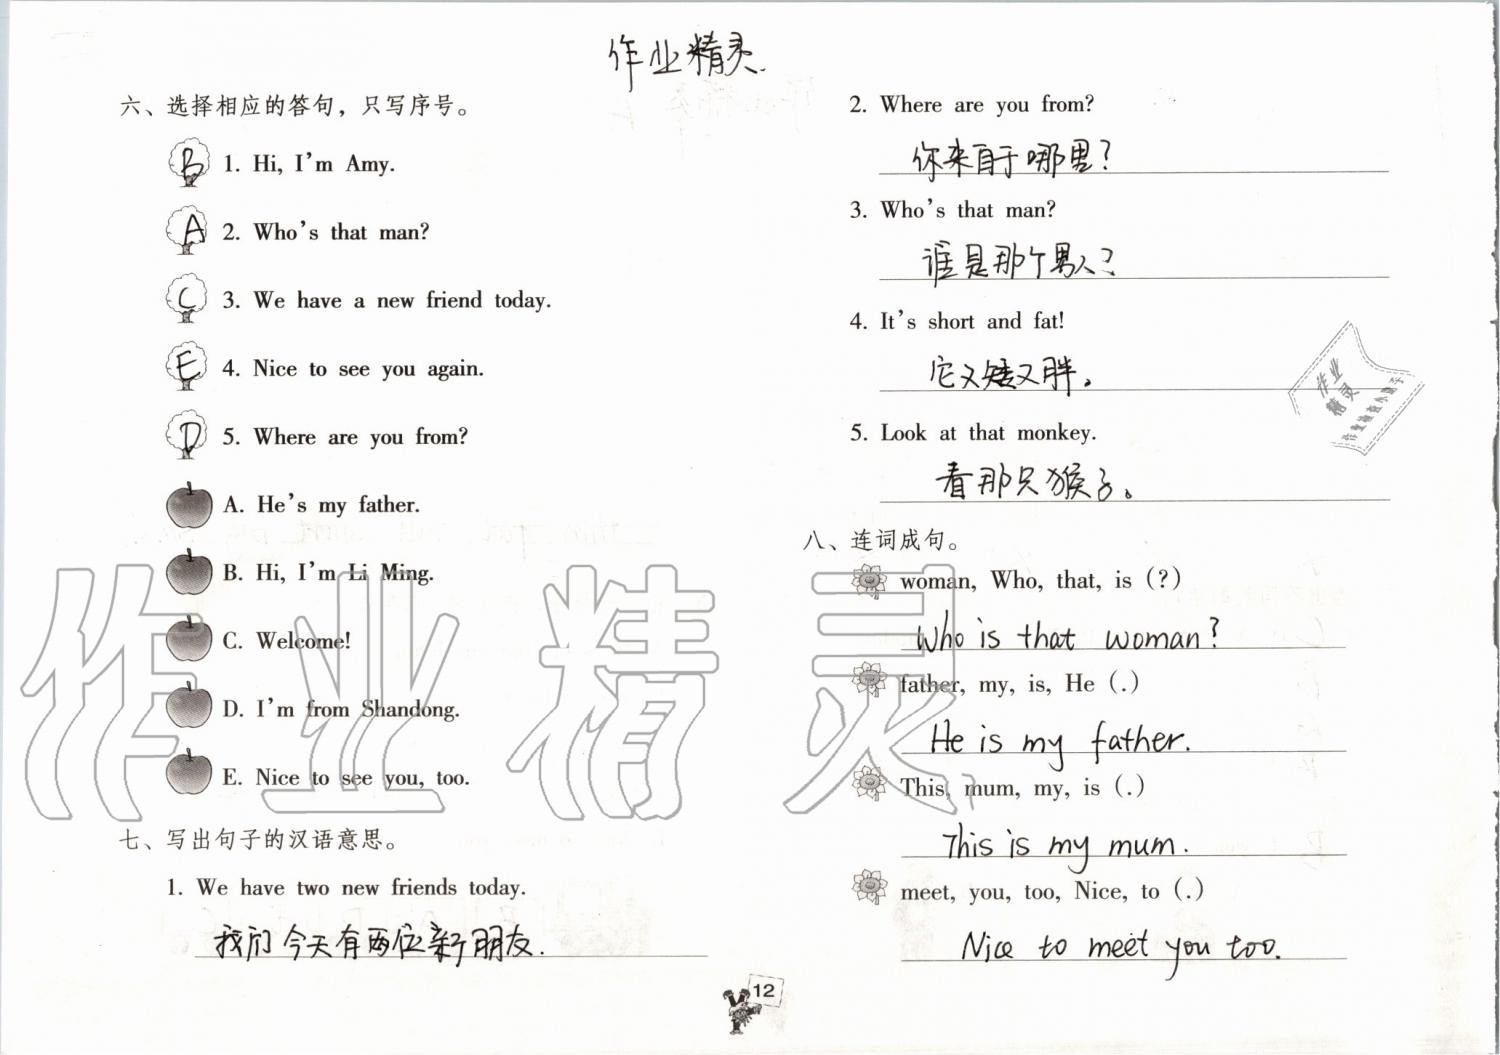 作业精灵.
六、选择相应的答句，只写序号。
B 1. Hi, I'm Amy.
A 2. Who's that man?
C 3. We have a new friend today.
E 4. Nice to see you again.
D 5. Where are you from?
A. He's my father.
B. Hi, I'm Li Ming.
C. Welcome!
D. I'm from Shandong.
E. Nice to see you, too.
七、写出句子的汉语意思。
1. We have two new friends today.
我们今天有两位新朋友.
2. Where are you from?
你来自于哪里?
3. Who's that man?
谁是那个男人?
4. It's short and fat!
它又矮又胖。
5. Look at that monkey.
看那只猴子。
八、连词成句。
woman, Who, that, is (?)
Who is that woman?
father, my, is, He (.)
He is my father.
This, mum, my, is (.)
This is my mum.
meet, you, too, Nice, to (.)
Nice to meet you too.
12
作业精灵
作业
精灵